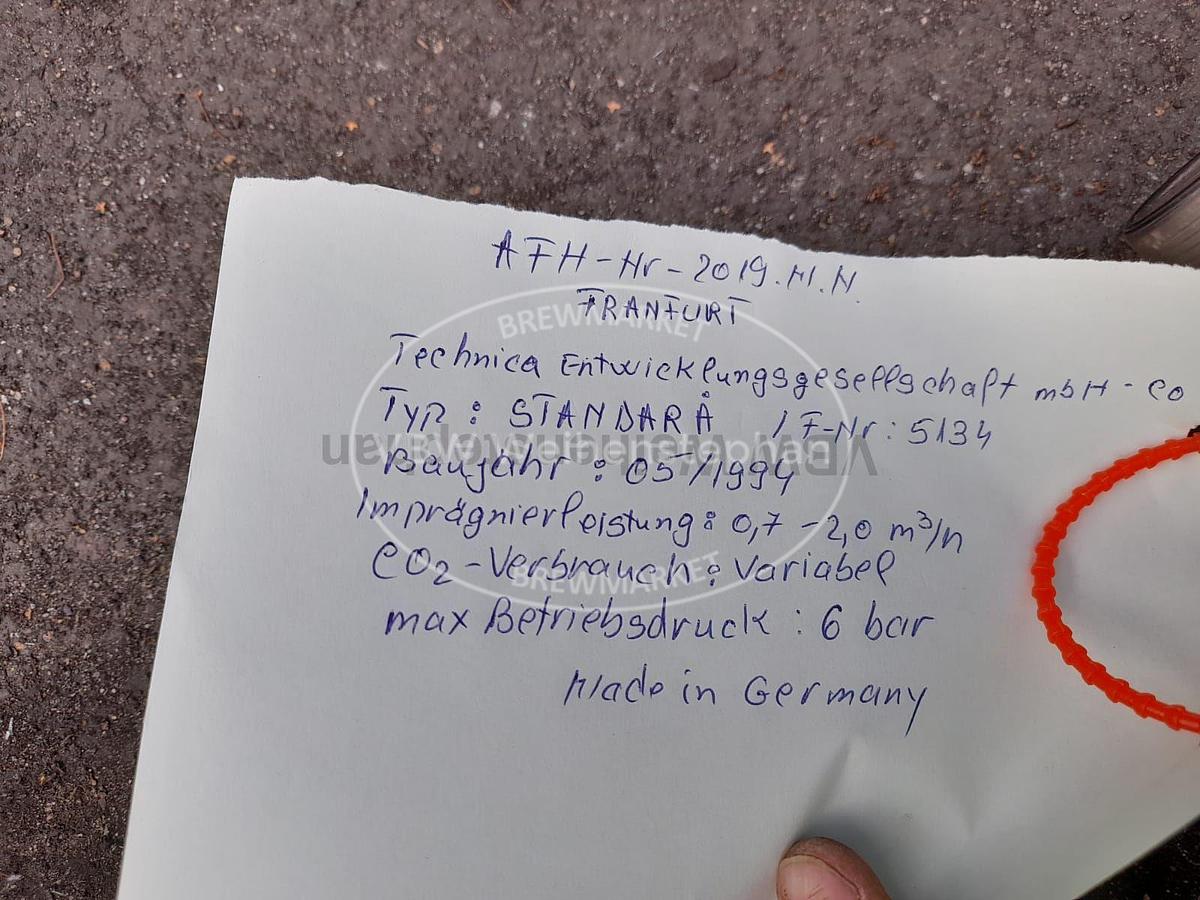 AFH-Nr-2019.M.N.
FRANFURT
Technica Entwicklungsgesellschaft mbH - co
Typ : STANDARD / F-Nr: 5134
Baujahr : 05/1994
Imprägnierleistung: 0,7 - 2,0 m³/h
CO₂-Verbrauch: Variabel
max Betriebsdruck : 6 bar
Made in Germany
BREWMARKET
BVK Weihenstephan
BREWMARKET